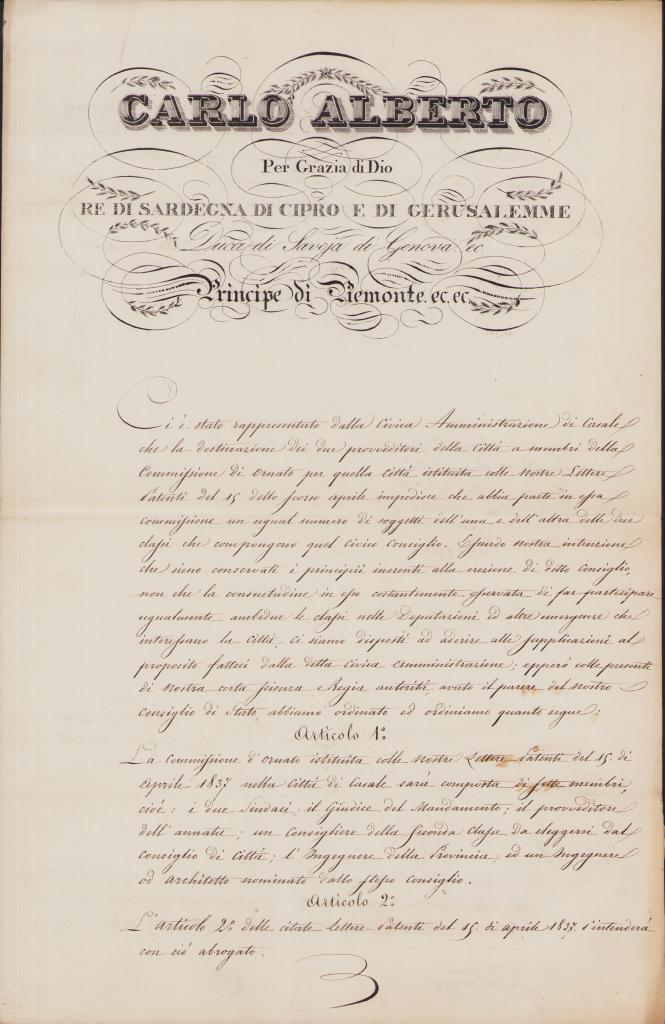 CARLO ALBERTO
Per Grazia di Dio
RE DI SARDEGNA DI CIPRO E DI GERUSALEMME
Duca di Savoja di Genova ec.
Principe di Piemonte ec. ec.
Ci è stato rappresentato dalla Civica Amministrazione di Casale
che la destinazione dei due provveditori della Città a membri della
Commissione di Ornato per quella Città istituita colle Nostre Lettere
Patenti del 15 dello scorso aprile impedisce che abbia parte in essa
Commissione un ugual numero di soggetti dell'una e dell'altra delle due
classi che compongono quel Civico Consiglio. Essendo nostra intenzione
che sieno conservati i principii inerenti alla erezione di detto Consiglio,
non che la consuetudine in esso costantemente osservata di far partecipare
ugualmente ambedue le classi nelle Deputazioni ed altre emergenze che
interessano la Città, ci siamo disposti ad aderire alle supplicazioni al
proposito fatteci dalla detta Civica Amministrazione; epperò colle presenti
di Nostra certa scienza e Regia autorità, avuto il parere del Nostro
Consiglio di Stato, abbiamo ordinato ed ordiniamo quanto segue:
Articolo 1º
La Commissione d'Ornato istituita colle nostre Lettere Patenti del 15. di
aprile 1837 nella Città di Casale sarà composta di sette membri
cioè: i due Sindaci; il Giudice del Mandamento; il provveditore
dell'annata; un Consigliere della seconda classe da eleggersi dal
Consiglio di Città; l'Ingegnere della Provincia; ed un Ingegnere
od Architetto nominato dallo stesso Consiglio.
Articolo 2º
L'articolo 2º delle citate Lettere Patenti del 15. di aprile 1837 s'intenderà
con ciò abrogato.